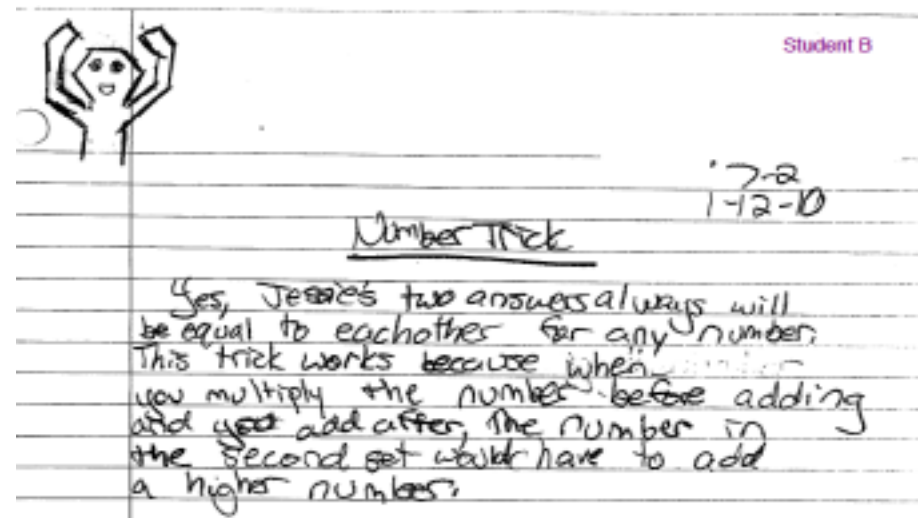 Student B
7-2
1-12-10
Number Trick
Yes, Jessie's two answers always will
be equal to eachother for any number.
This trick works because when
you multiply the number before adding
and you add after, the number in
the second set would have to add
a higher number.